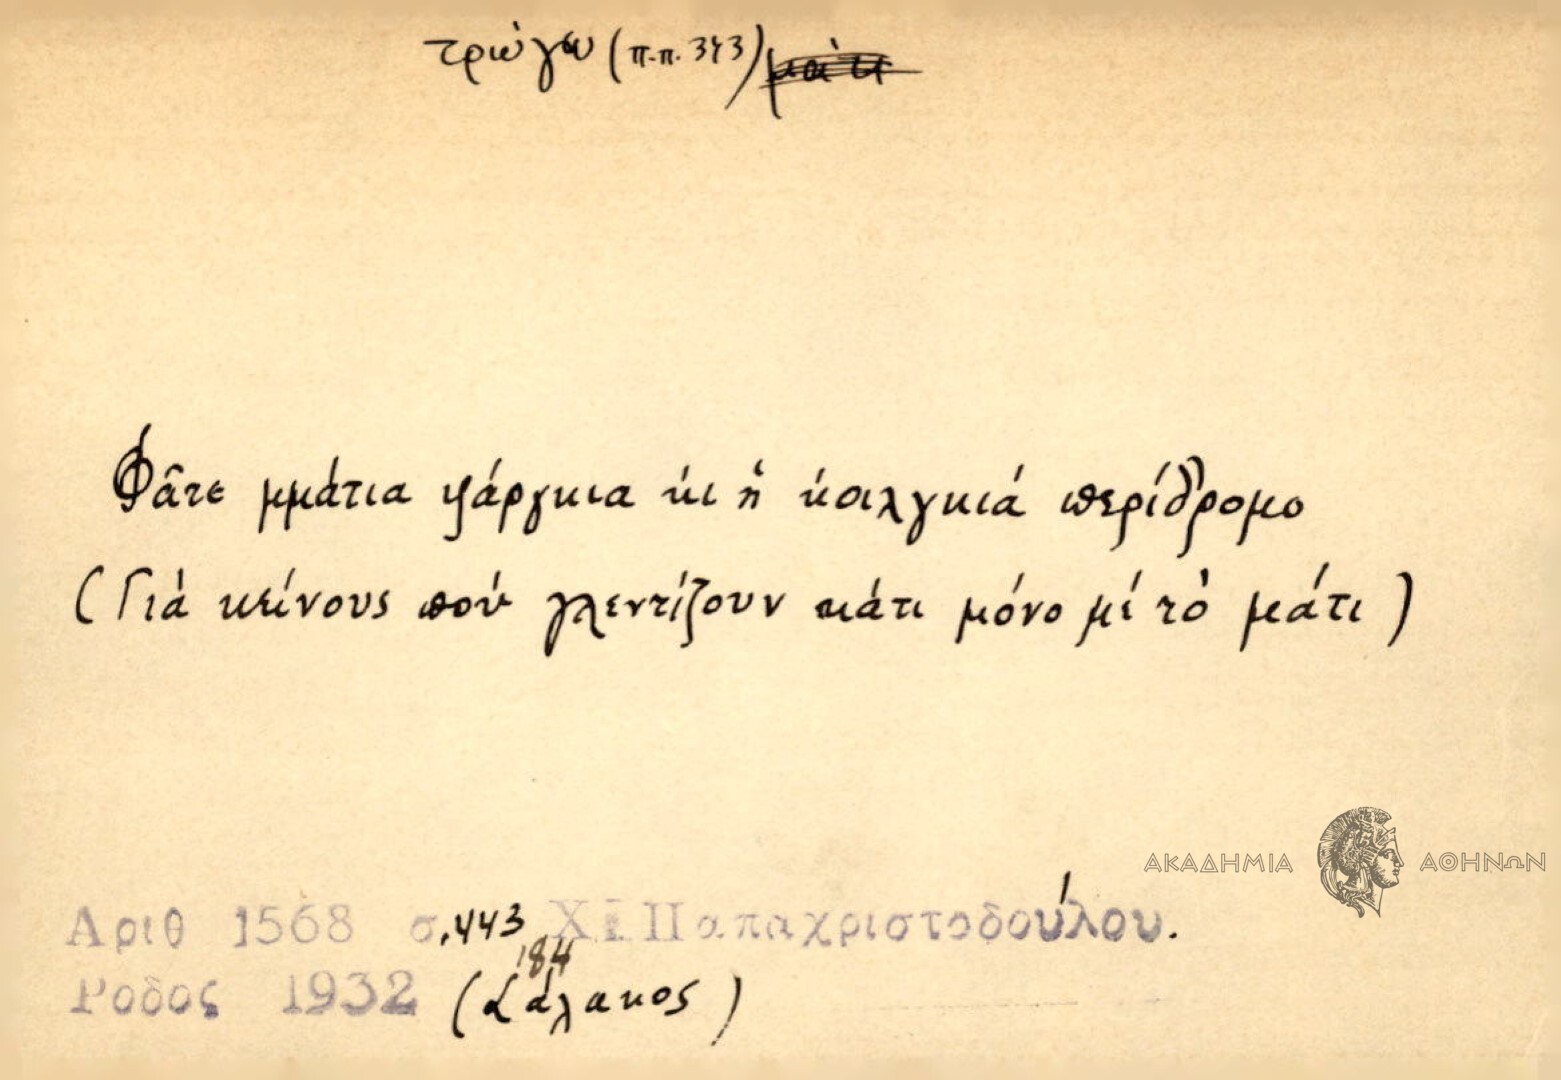 τρώγω (π.π. 343)
Φᾶτε μμάτια ψάργκια κι ἡ κοιλγκιά περίδρομο
(Γιά κείνους πού γλεντίζουν κάτι μόνο μέ τό μάτι)
ΑΚΑΔΗΜΙΑ ΑΘΗΝΩΝ
Αριθ 1568 σ.443 Χ Ι Παπαχριστοδούλου.
184
Ροδος 1932 (Σάλακος)